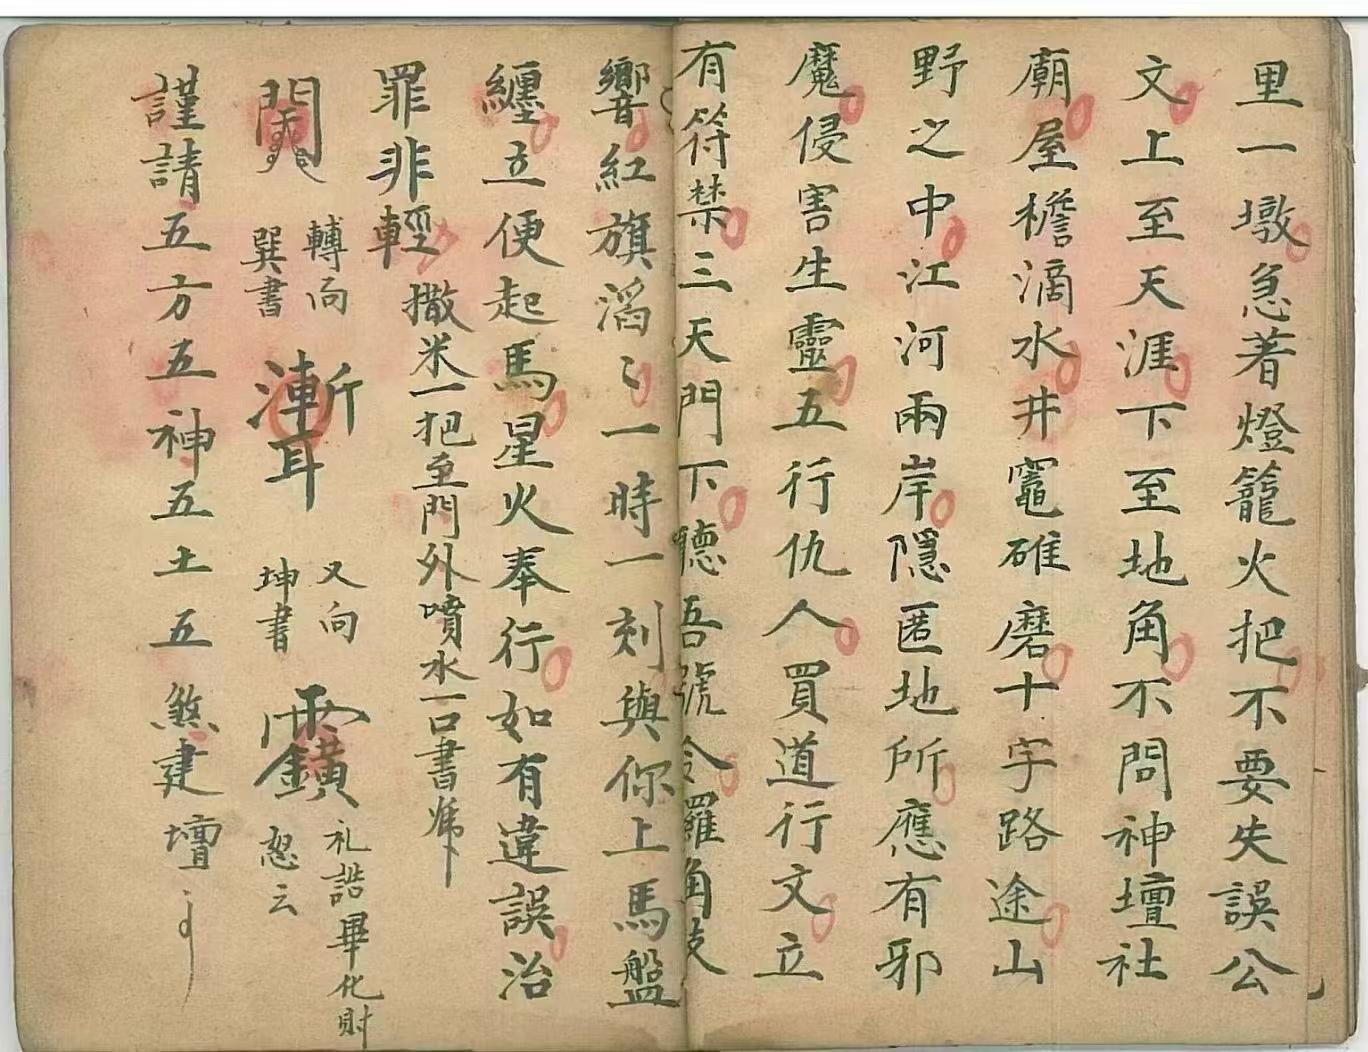 里一墩急著燈籠火把不要失誤公
文上至天涯下至地角不問神壇社
廟屋檐滴水井竈碓磨十字路途山
野之中江河兩岸隱匿地所應有邪
魔侵害生靈五行仇人買道行文立
有符禁三天門下聽吾號令羅角皷
響紅旗滔〻一時一刻與你上馬盤
纏立便起馬星火奉行如有違誤治
罪非輕 撒米一把至門外噴水一口書
轉向
巽書
又向
坤書
礼誥畢化財
恕云
謹請五方五神五土五煞建壇